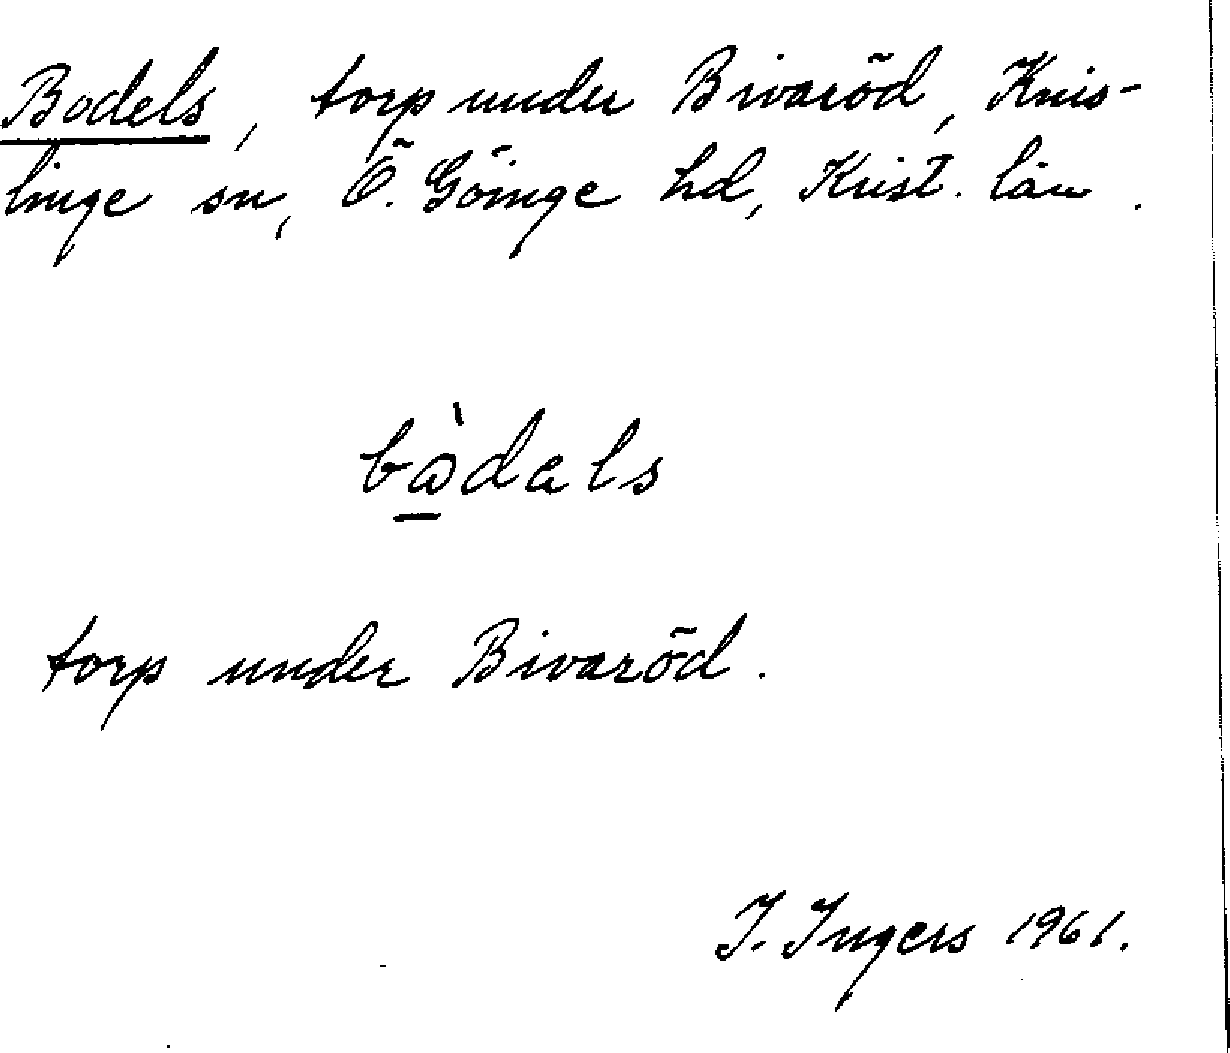 Bodels, torp under Bivaröd, Knis-
linge sn, Ö. Göinge hd, Krist. län.
bòdals
torp under Bivaröd.
I. Ingers 1961.